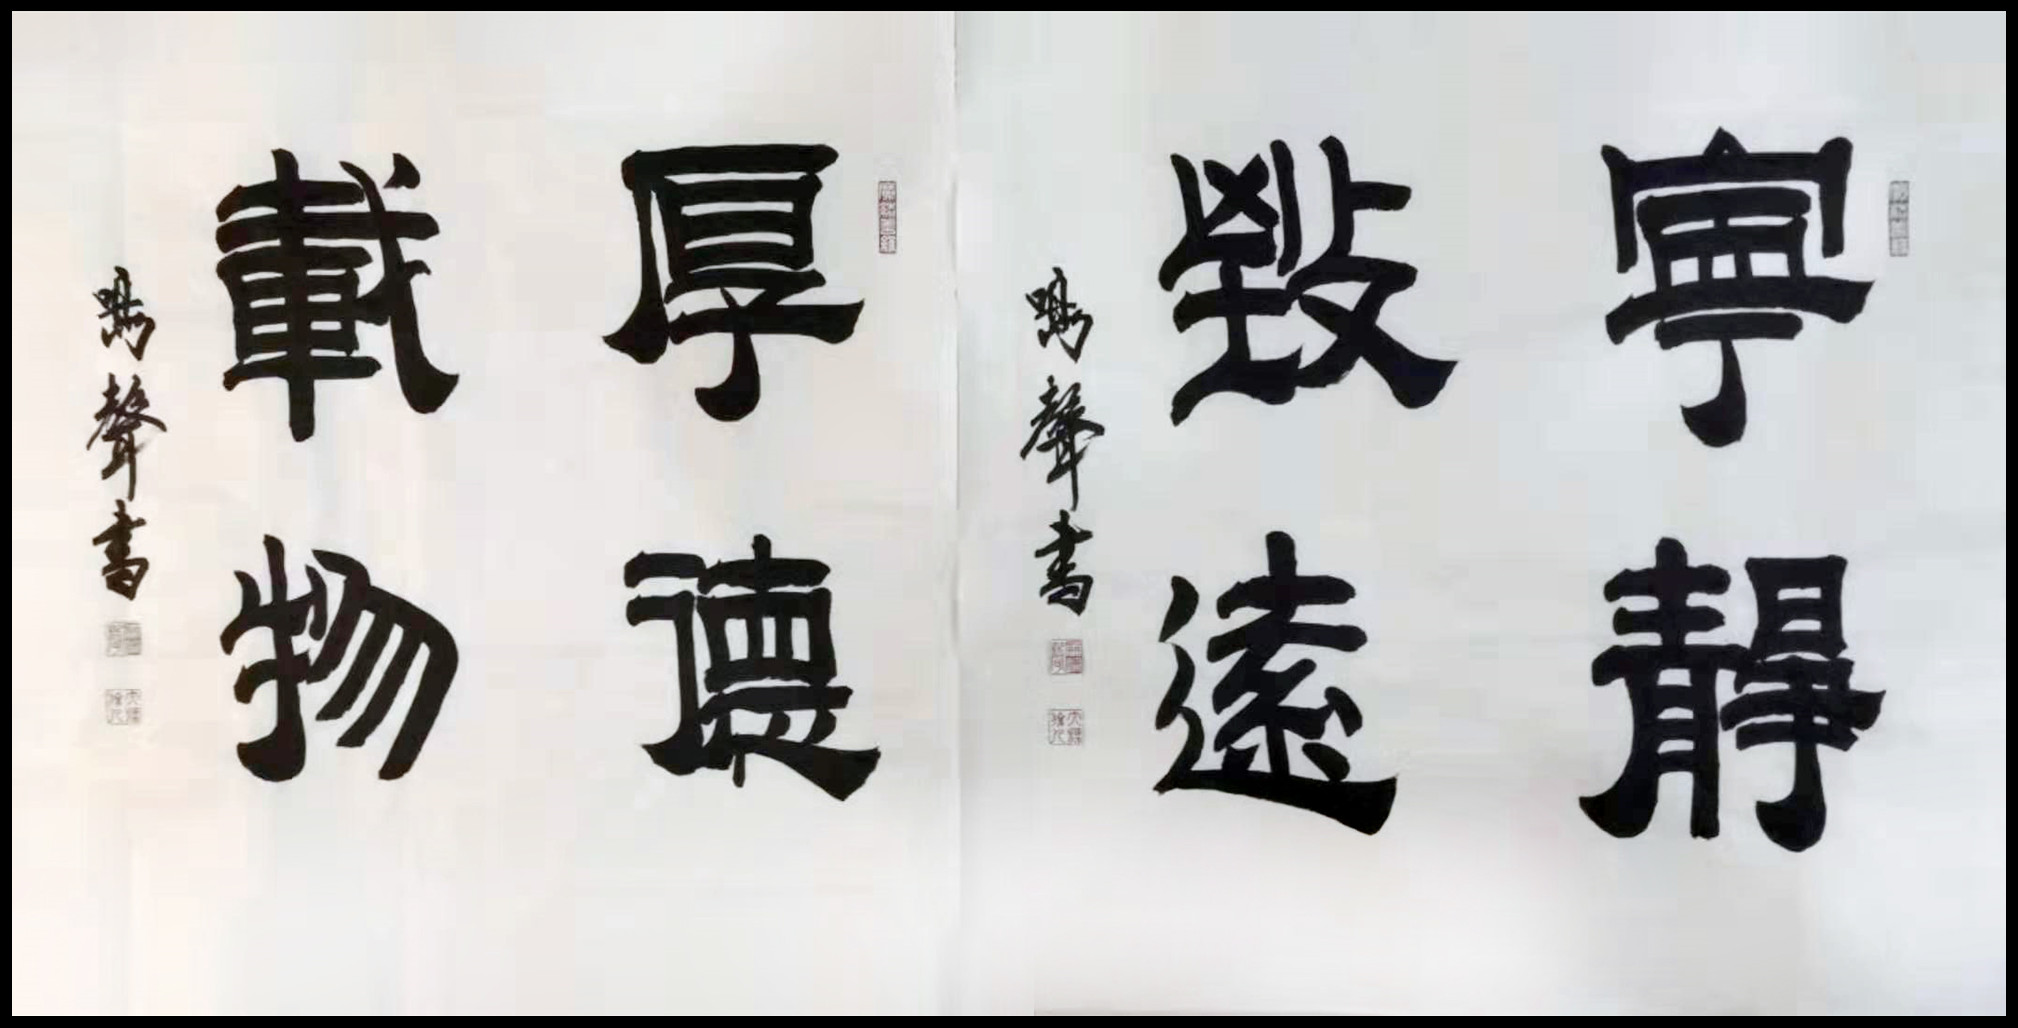 寧靜
致遠
聲書
厚德
載物
聲書